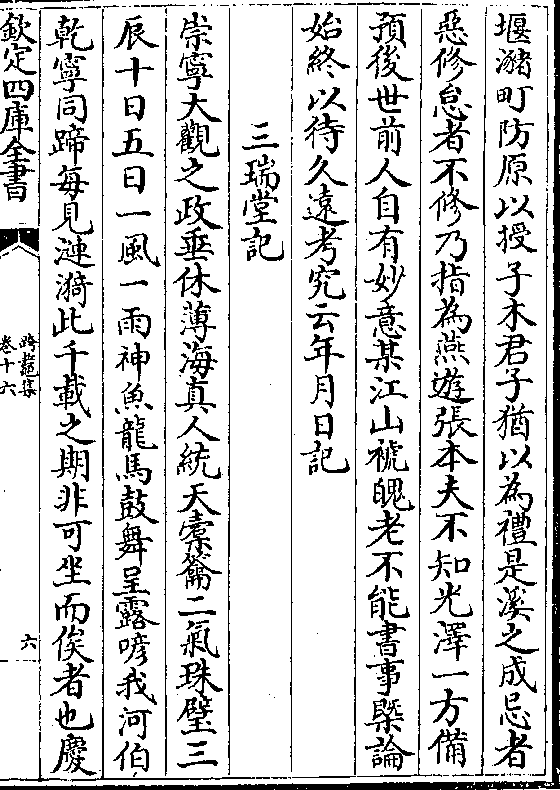 堰瀦町防原以授子木君子猶以為禮是溪之成忌者
惡修怠者不修乃指為燕遊張本夫不知光澤一方備
預後世前人自有妙意某江山褫魄老不能書事槩論
始終以待久遠考究云年月日記
三瑞堂記
崇寧大觀之政垂休薄海真人統天橐籥二氣珠璧三
辰十日五日一風一雨神魚龍馬鼓舞呈露嘇我河伯
乾寧同蹄每見漣漪此千載之期非可坐而俟者也慶
欽定四庫全書
跨鼇集
卷十六
六